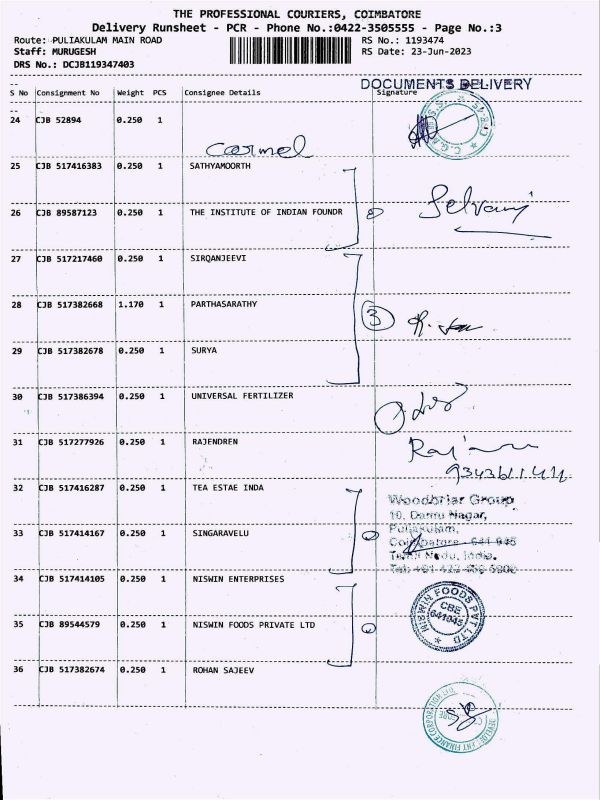 THE PROFESSIONAL COURIERS, COIMBATORE
Delivery Runsheet - PCR - Phone No.:0422-3505555 - Page No.:3
Route: PULIAKULAM MAIN ROAD RS No.: 1193474
Staff: MURUGESH RS Date: 23-Jun-2023
DRS No.: DCJB119347403
DOCUMENTS DELIVERY
S No Consignment No Weight PCS Consignee Details Signature
24 CJB 52894 0.250 1
Carmel
25 CJB 517416383 0.250 1 SATHYAMOORTH
26 CJB 89587123 0.250 1 THE INSTITUTE OF INDIAN FOUNDR
Selvaraj
27 CJB 517217460 0.250 1 SIRQANJEEVI
28 CJB 517382668 1.170 1 PARTHASARATHY
3
29 CJB 517382678 0.250 1 SURYA
30 CJB 517386394 0.250 1 UNIVERSAL FERTILIZER
31 CJB 517277926 0.250 1 RAJENDREN
32 CJB 517416287 0.250 1 TEA ESTAE INDA
Woodbriar Group
10, Damu Nagar,
Puliakulam,
Coimbatore - 641 045
Tamil Nadu, India.
33 CJB 517414167 0.250 1 SINGARAVELU
34 CJB 517414105 0.250 1 NISWIN ENTERPRISES
35 CJB 89544579 0.250 1 NISWIN FOODS PRIVATE LTD
NISWIN FOODS PVT LTD
CBE
641045
36 CJB 517382674 0.250 1 ROHAN SAJEEV